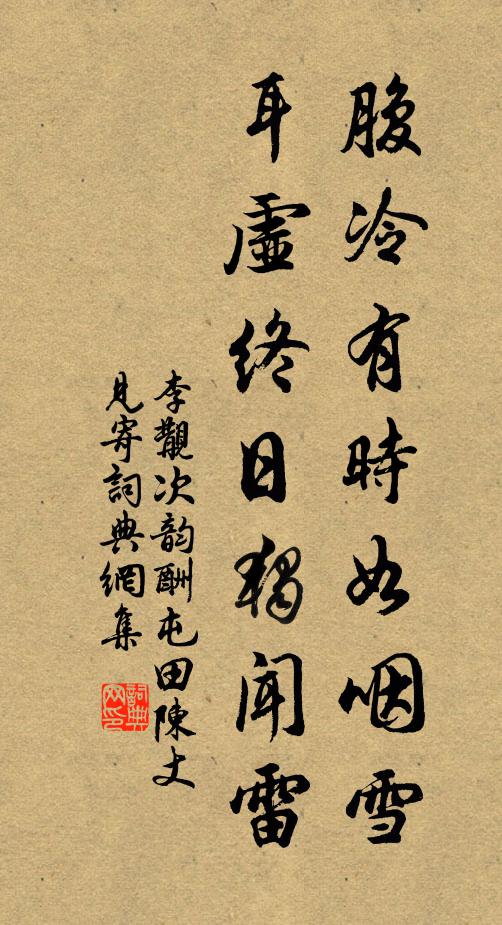 腹冷有時如咽雪
耳虛終日獨聞雷
李觀次韵酬屯田陳丈
見寄詞典網集
詞典网印